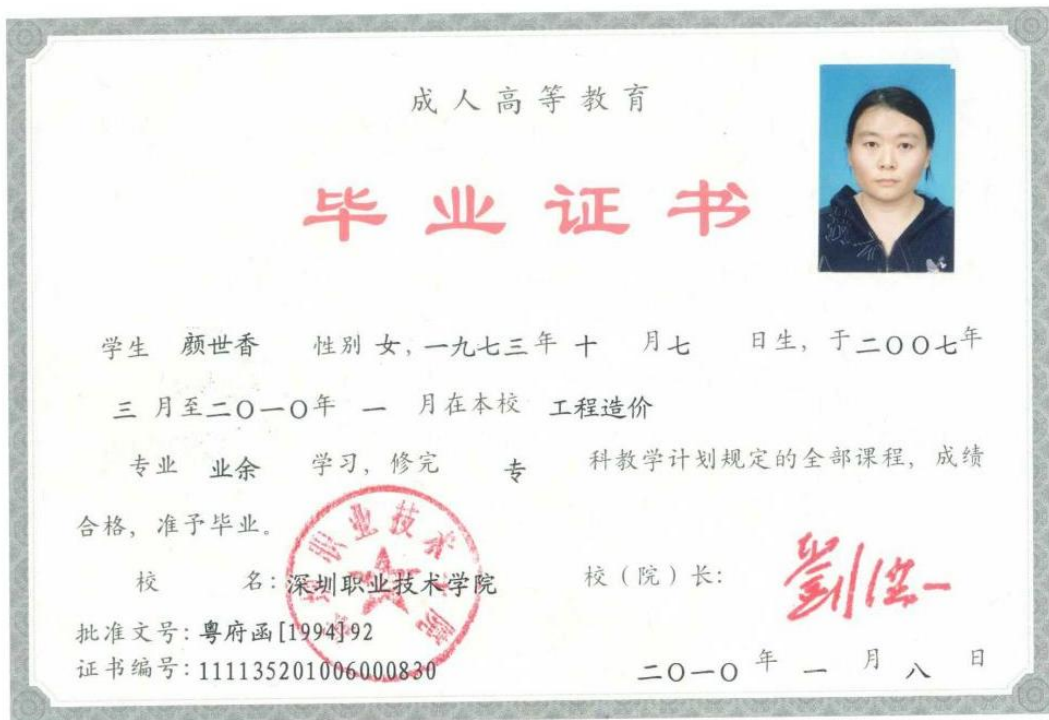 成人高等教育
毕业证书
学生 颜世香 性别 女, 一九七三年 十 月 七 日生, 于二〇〇七年
三 月至二〇一〇年 一 月在本校 工程造价
专业 业余 学习, 修完 专 科教学计划规定的全部课程, 成绩
合格, 准予毕业。
校 名: 深圳职业技术学院 校(院)长: 劉洪一
批准文号: 粤府函[1994]92
证书编号: 111135201006000830 二〇一〇 年 一 月 八 日
深圳职业技术学院